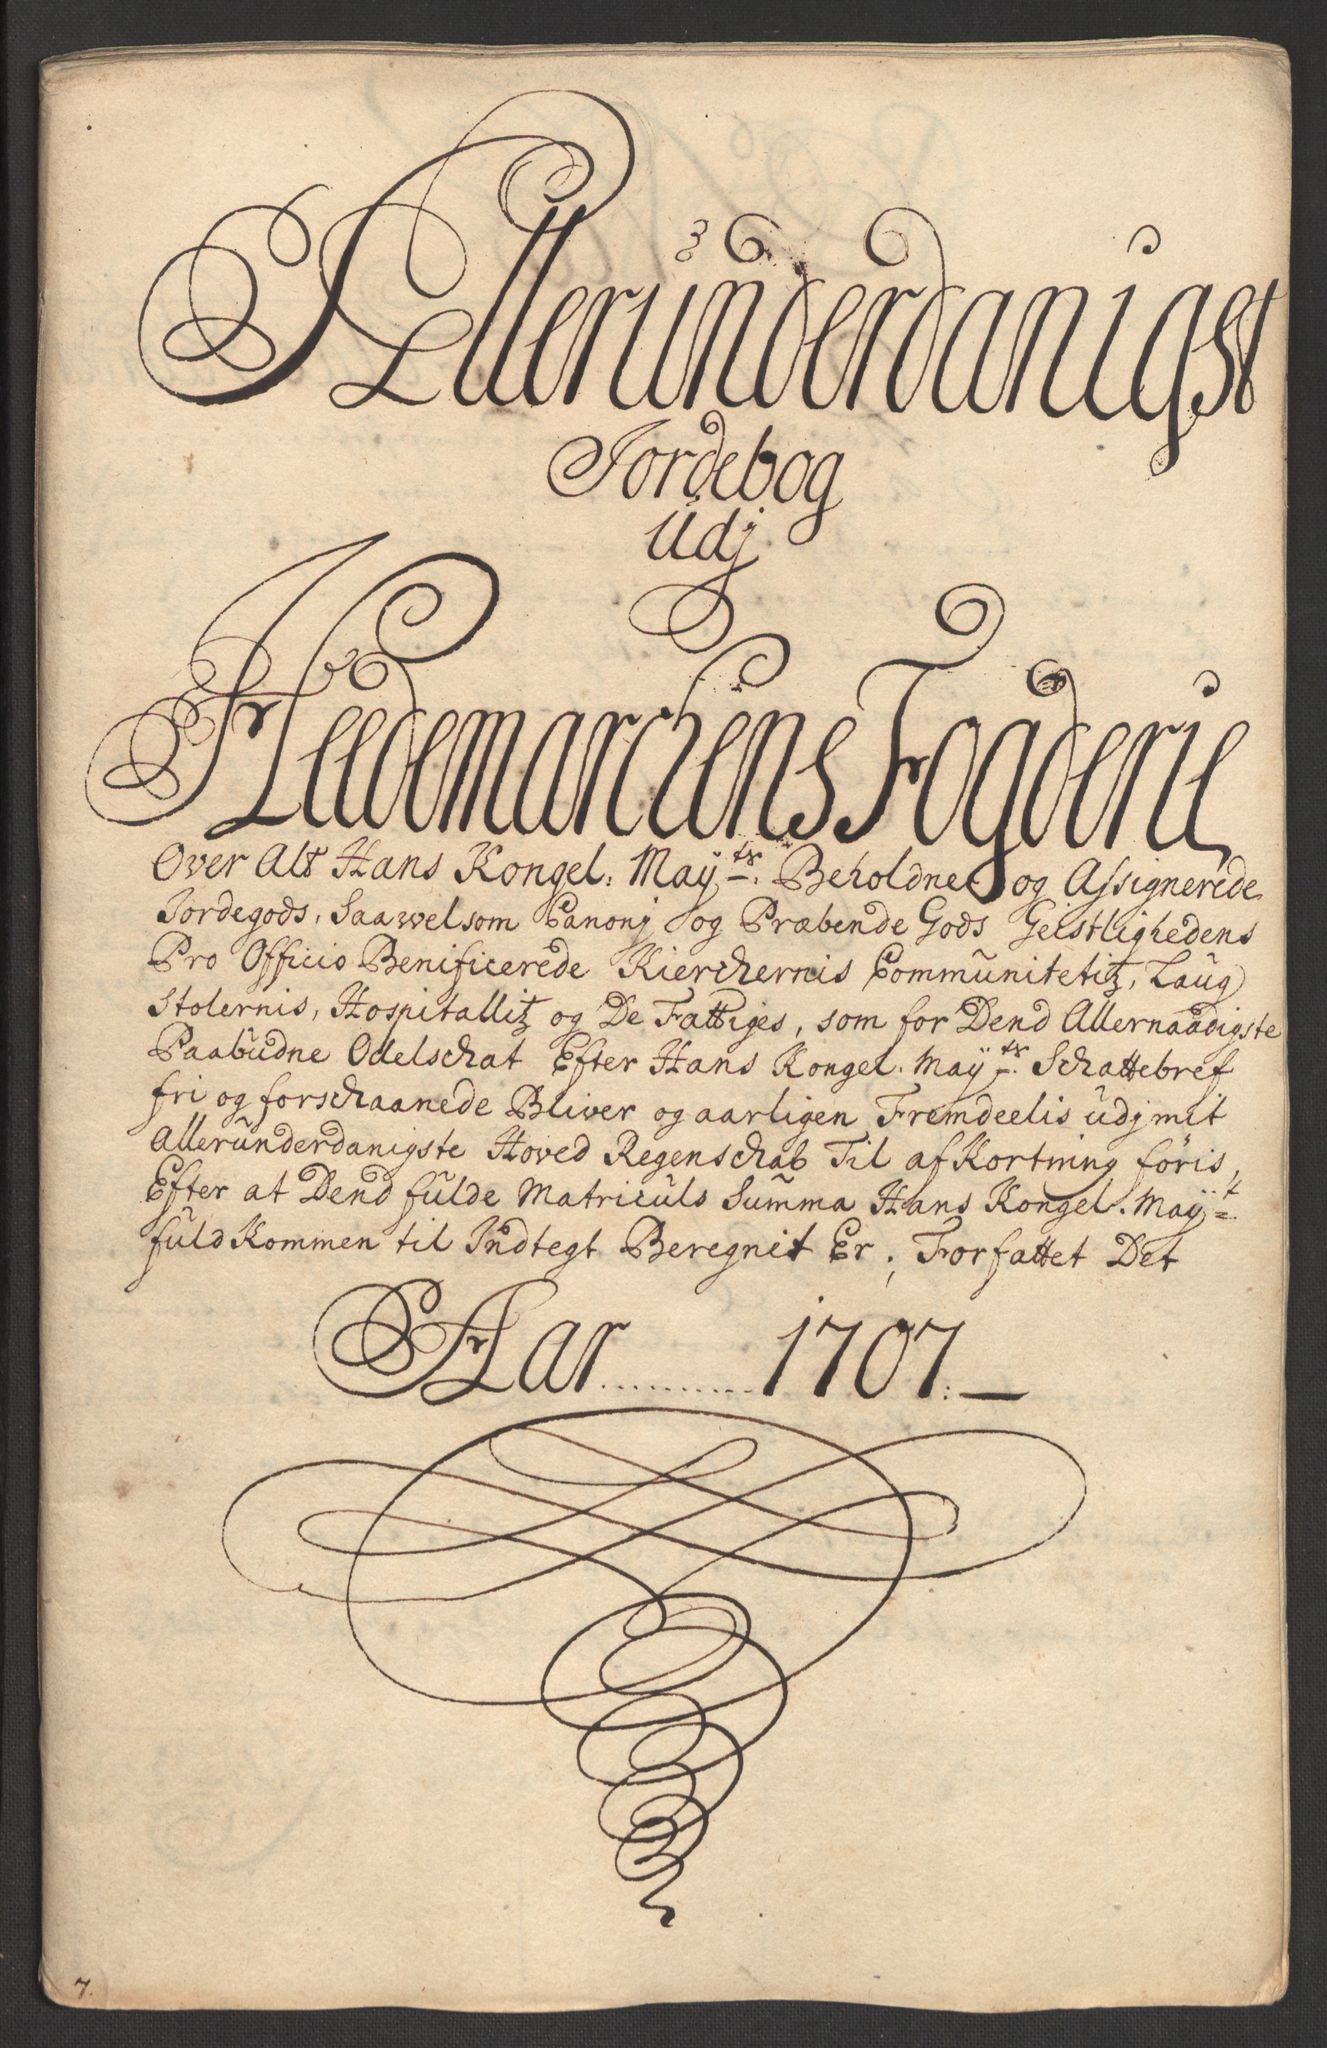 Allerunderdanigst
Jordebog
Udj
Heedemarchens Fogderie
Over Alt Hans Kongel: Maÿ.ts. Beholdne og Assignerede
Jordegods, Saawelsom Canonj og Præbende Gods Geistlighedens
Pro Officio Benificerede Kierchernis Communitetitz, Laug
Stolernis, Hospitallitz og De Fattiges, som for Dend Allernaadigste
Paabudne Odelschat Efter Hans Kongel. Maÿ.ts. Schattebref
fri og forschaanede Bliver og aarligen Fremdeelis udj mit
Allerunderdanigste Hoved Regenschab Til afKortning föris,
Efter at Dend fulde Matriculs Summa Hans Kongel. Maÿ.t
fuldKommen til Indtegt Beregnit Er; Forfattet Det
Aar.......... 1707. —
7.